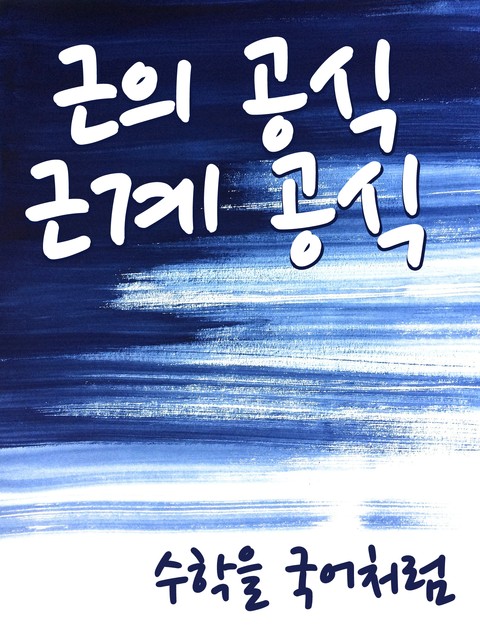 근의 공식
근계 공식
수학을 국어처럼